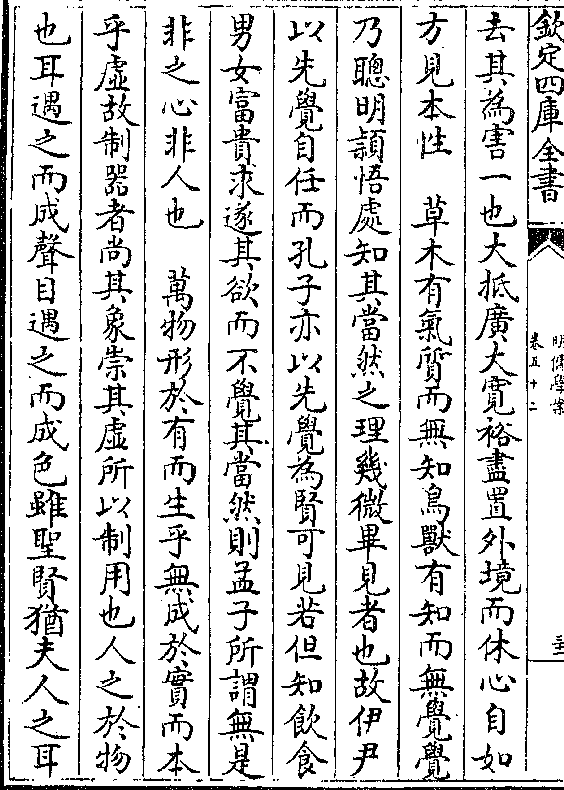 欽定四庫全書
明儒學案
卷五十二
去其為害一也大抵廣大寬裕盡置外境而休心自如
方見本性　草木有氣質而無知鳥獸有知而無覺覺
乃聰明頴悟處知其當然之理幾微畢見者也故伊尹
以先覺自任而孔子亦以先覺為賢可見若但知飲食
男女富貴求遂其欲而不覺其當然則孟子所謂無是
非之心非人也　萬物形於有而生乎無成於實而本
乎虛故制器者尚其象崇其虛所以制用也人之於物
也耳遇之而成聲目遇之而成色雖聖賢猶夫人之耳